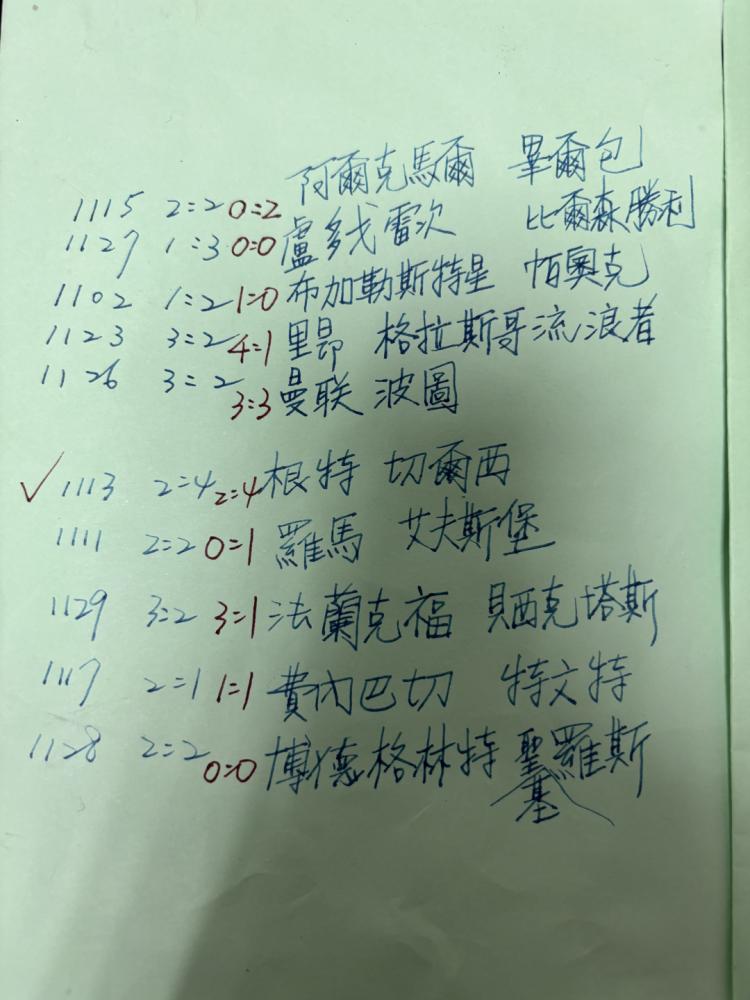 阿爾克馬爾 畢爾包
1115 2=2 0=2
1127 1=3 0=0 盧多戈雷次 比爾森勝利
1102 1=2 1=0 布加勒斯特星 帕奧克
1123 3=2 4=1 里昂 格拉斯哥流浪者
1126 3=2 3=3 曼联 波圖
✓ 1113 2=4 2=4 根特 切爾西
1111 2=2 0=1 羅馬 艾夫斯堡
1129 3=2 3=1 法蘭克福 貝西克塔斯
1117 2=1 1=1 費內巴切 特文特
1128 2=2 0=0 博德格林特 聖羅斯
基